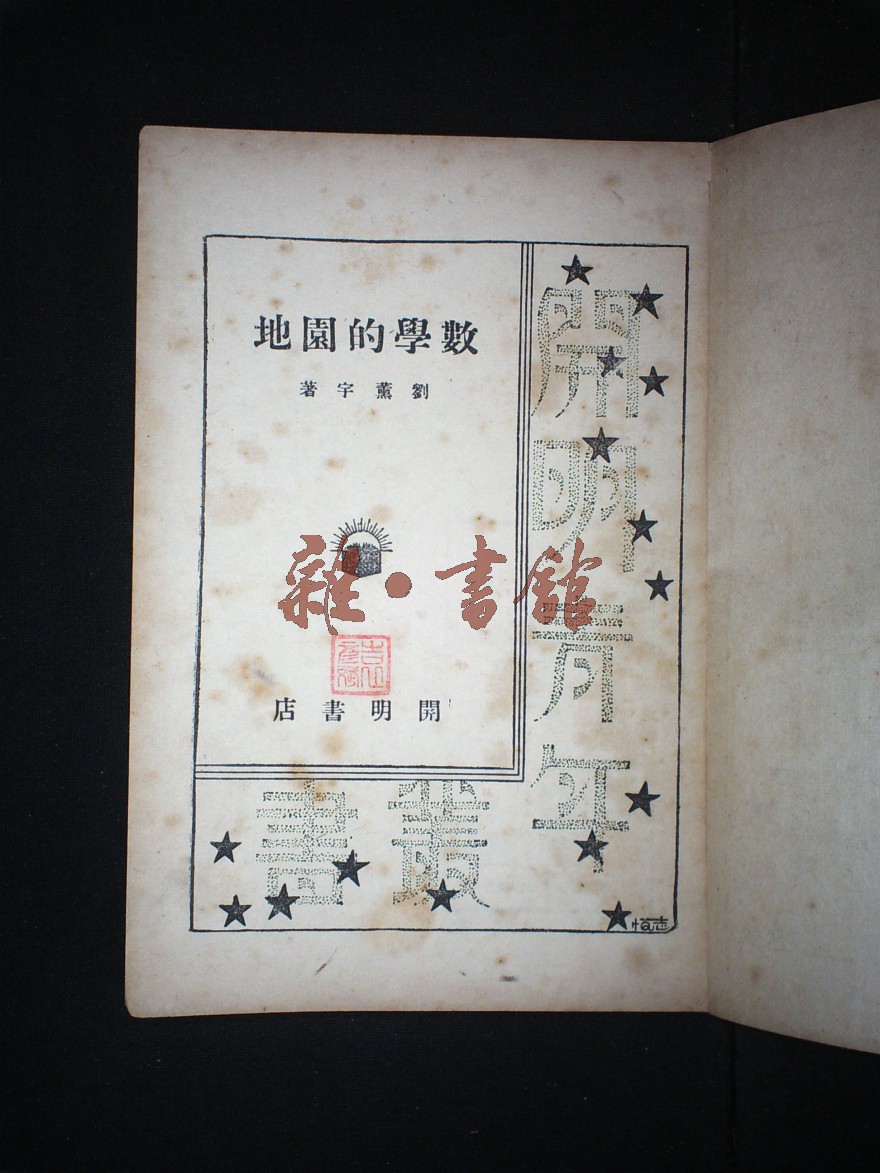 數學的園地
劉薰宇著
雜·書館
開明書店
開明青年
叢書